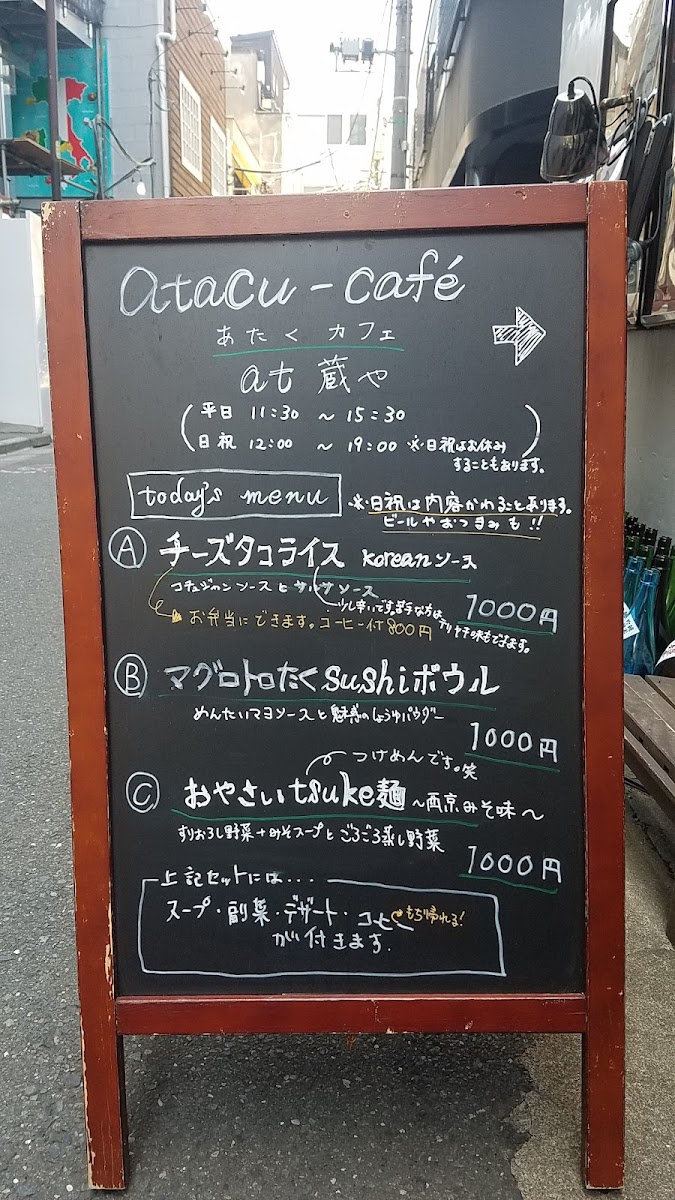 atacu - café
あたくカフェ
at 蔵や
平日 11:30 ～ 15:30
日祝 12:00 ～ 19:00 ※日祝はお休み
することもあります。
today's menu
※日祝は内容かわることあります。
ビールやおつまみも!!
Ⓐ チーズタコライス koreanソース
コチュジャンソースとサルサソース
少し辛いです。苦手な方は
テリヤキ味もできます。
1000円
お弁当にできます。コーヒー付800円
Ⓑ マグロトロたくsushiボウル
めんたいマヨソースと魅惑のしょうゆパウダー
1000円
つけめんです。笑
Ⓒ おやさいtsuke麺 ～西京みそ味～
すりおろし野菜+みそスープとごろごろ蒸し野菜
1000円
上記セットには....
スープ・副菜・デザート・コーヒー
もち帰れる!
が付きます.